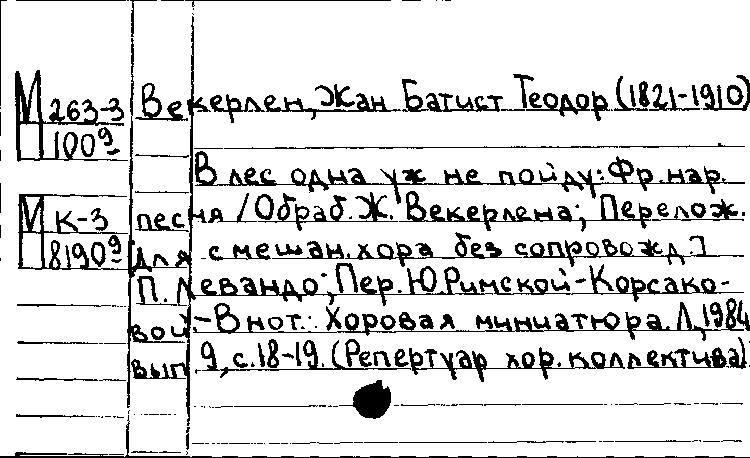 М 263-3 Векерлен, Жан Батист Теодор (1821-1910)
П 100э
В лес одна уж не пойду: Фр. нар.
М К-3 песня / Обраб. Ж. Векерлена; Перелож.
П 8190э [для смешан. хора без сопровожд.]
П. Левандо; Пер. Ю. Римской-Корсако-
вой.-В нот.: Хоровая миниатюра. Л., 1984
вып 9, с. 18-19. (Репертуар хор. коллектива)